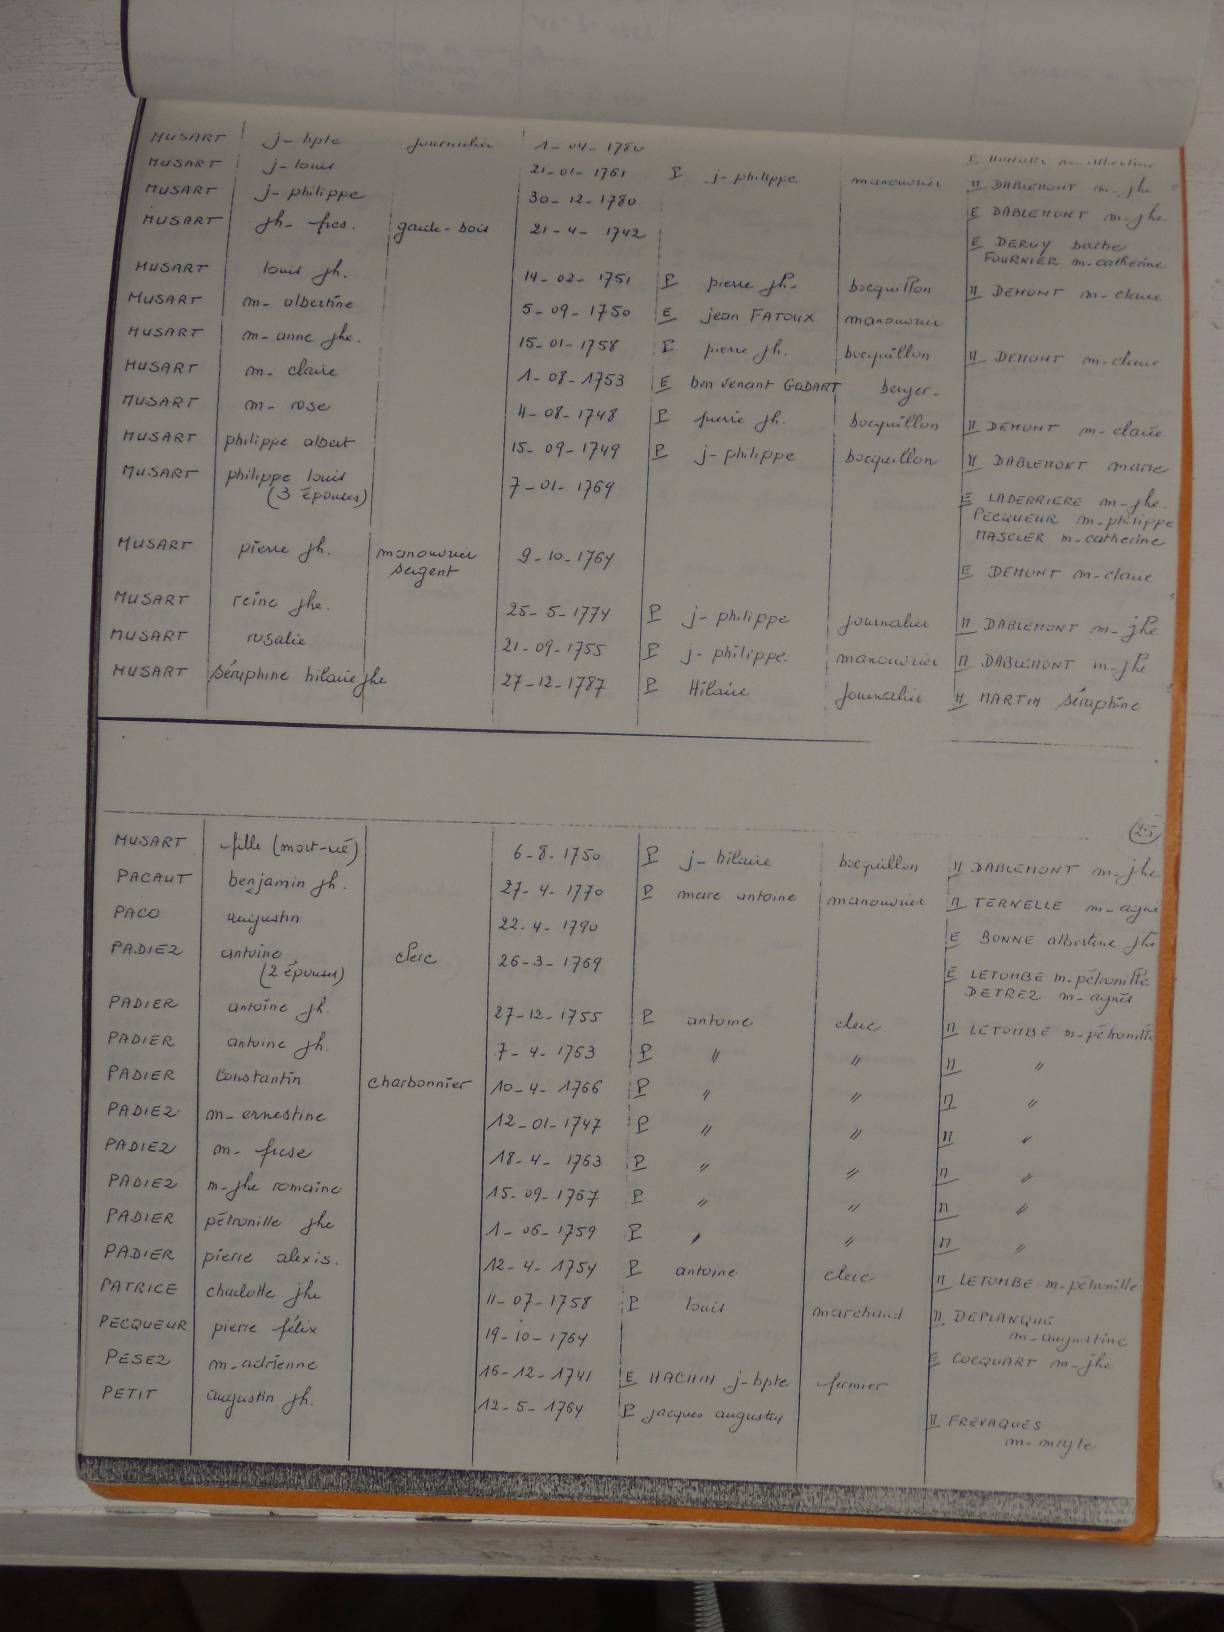 MUSART j-bpte journalier 1-04-1780 E m-albertine
MUSART j-louis 21-01-1761 P j-philippe manouvrier M DABLEMONT m-jhe
MUSART j-philippe 30-12-1780 E DABLEMONT m-jhe
MUSART jh-fcs. garde-bois 21-4-1742 E DERUY barbe
FOURNIER m-catherine
MUSART louis jh. 14-02-1751 P pierre jh- bocquillon M DEMONT m-claire
MUSART m-albertine 5-09-1750 E jean FATOUX manouvrier
MUSART m-anne jhe. 15-01-1758 P pierre jh. bocquillon M DEMONT m-claire
MUSART m-claire 1-08-1753 E bon venant GODART berger-
MUSART m-rose 4-08-1748 P pierre jh. bocquillon M DEMONT m-claire
MUSART philippe albert 15-09-1749 P j-philippe bocquillon M DABLEMONT marie
MUSART philippe louis 7-01-1769 E LADERRIERE m-jhe.
(3 épouses) PECQUEUR m-philippe
MASCLER m-catherine
MUSART pierre jh. manouvrier 9-10-1764 E DEMONT m-claire
sergent
MUSART reine jhe. 25-5-1774 P j-philippe journalier M DABLEMONT m-jhe
MUSART rosalie 21-09-1755 P j-philippe. manouvrier M DABLEMONT m-jhe
MUSART séraphine hilaire jhe 27-12-1787 P Hilaire journalier M MARTIN séraphine
25
MUSART fille (mort-né) 6-8-1750 P j-hilaire bocquillon M DABLEMONT m-jhe
PACAUT benjamin jh. 27-4-1770 P marc antoine manouvrier M TERNELLE m-agne
PACO augustin 22-4-1790 E BONNE albertine jhe
PADIEZ antoine clerc 26-3-1769 E LETOMBE m-pétronille
(2 épouses) DETREZ m-agnès
PADIER antoine jh. 27-12-1755 P antoine clerc M LETOMBE m-pétronille
PADIER antoine jh. 7-4-1763 P " " M "
PADIER constantin charbonnier 10-4-1766 P " " M "
PADIEZ m-ernestine 12-01-1747 P " " M "
PADIEZ m-frse 18-4-1763 P " " M "
PADIEZ m-jhe romaine 15-09-1767 P " " M "
PADIER pétronille jhe 1-06-1759 P " " M "
PADIER pierre alexis. 12-4-1754 P antoine clerc M LETOMBE m-pétronille
PATRICE charlotte jhe 11-07-1758 P louis marchand M DEPLANQUE
m-augustine
PECQUEUR pierre félix 19-10-1764 E COCQUART m-jhe
PESEZ m-adrienne 16-12-1741 E HACHIN j-bpte fermier
PETIT augustin jh. 12-5-1764 P jacques augustin M FREVAQUES
m-mgte